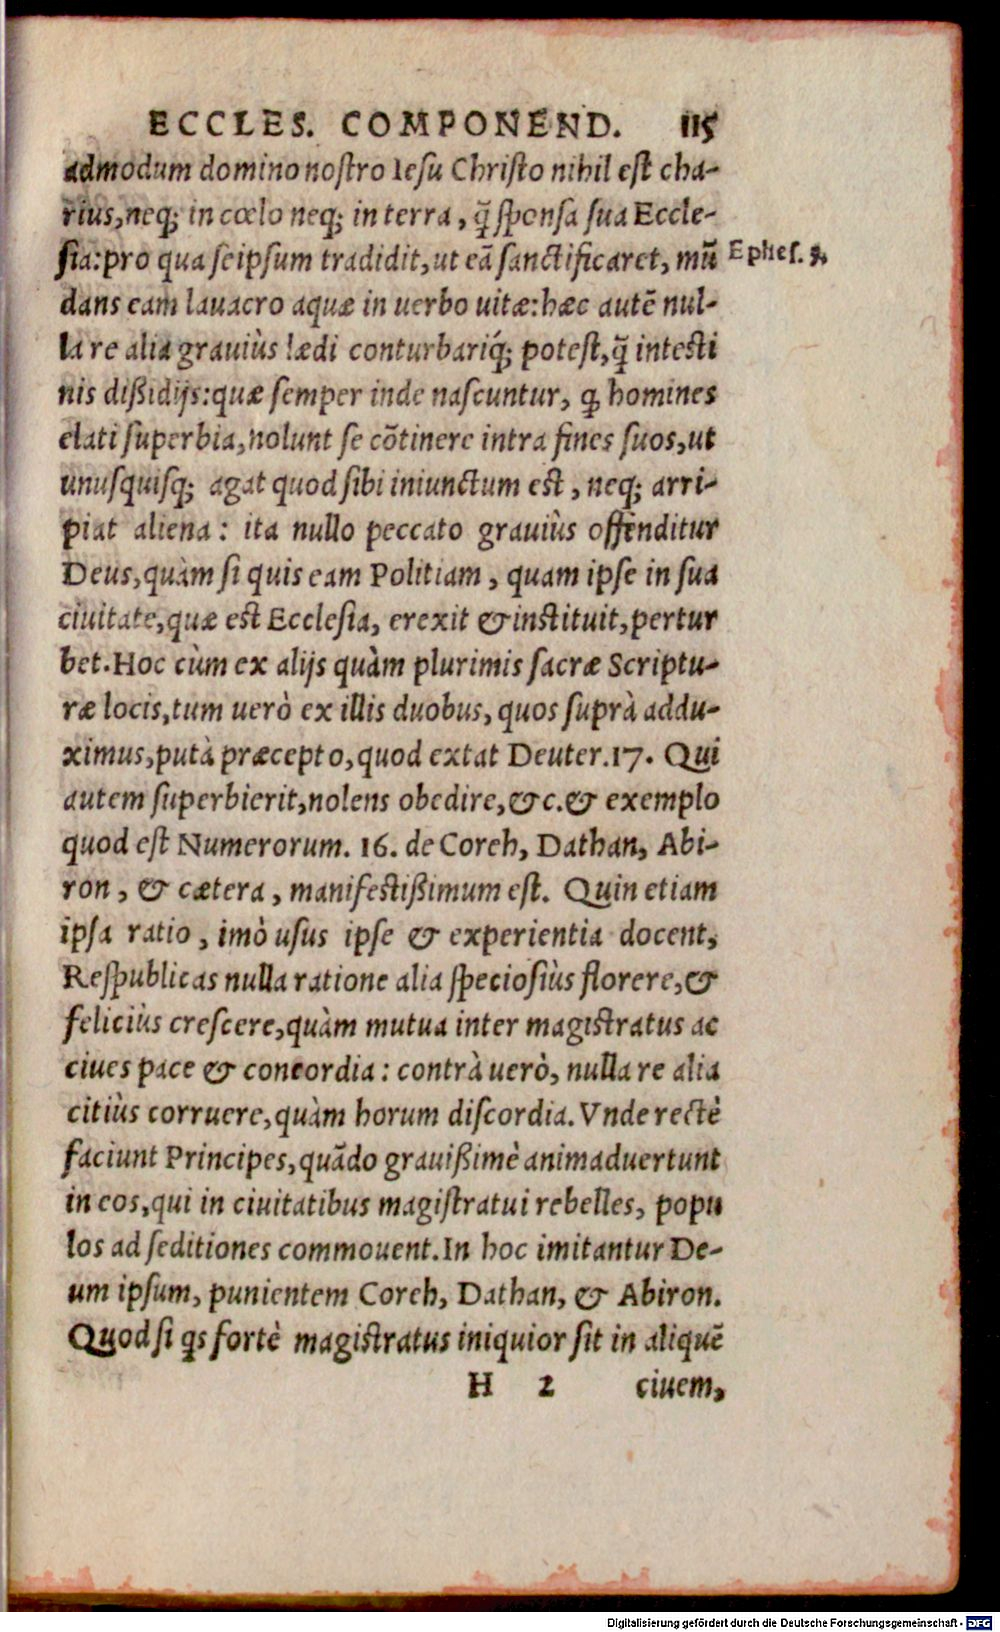 ECCLES. COMPONEND. 115
admodum domino nostro Iesu Christo nihil est cha-
rius, neq; in cœlo neq; in terra, q̃ sponsa sua Eccle-
sia: pro qua seipsum tradidit, ut eã sanctificaret, mũ Ephes.
dans eam lauacro aquæ in uerbo uitæ: hæc autẽ nul-
la re alia grauiùs lædi conturbariq́; potest, q̃ intesti
nis dißidijs: quæ semper inde nascuntur, ꝙ homines
elati superbia, nolunt se cõtinere intra fines suos, ut
unusquisq; agat quod sibi iniunctum est, neq; arri-
piat aliena: ita nullo peccato grauiùs offenditur
Deus, quàm si quis eam Politiam, quam ipse in sua
ciuitate, quæ est Ecclesia, erexit & instituit, pertur
bet. Hoc cùm ex alijs quàm plurimis sacræ Scriptu-
ræ locis, tum uerò ex illis duobus, quos suprà addu-
ximus, putà præcepto, quod extat Deuter. 17. Qui
autem superbierit, nolens obedire, &c. & exemplo
quod est Numerorum. 16. de Coreh, Dathan, Abi-
ron, & cætera, manifestißimum est. Quin etiam
ipsa ratio, imò usus ipse & experientia docent,
Respublicas nulla ratione alia speciosiùs florere, &
feliciùs crescere, quàm mutua inter magistratus ac
ciues pace & concordia: contrà uerò, nulla re alia
citiùs corruere, quàm horum discordia. Vnde rectè
faciunt Principes, quãdo grauißimè animaduertunt
in eos, qui in ciuitatibus magistratui rebelles, popu
los ad seditiones commouent. In hoc imitantur De-
um ipsum, punientem Coreh, Dathan, & Abiron.
Quod si qs fortè magistratus iniquior sit in aliquẽ
H 2 ciuem,
Digitalisierung gefördert durch die Deutsche Forschungsgemeinschaft - DFG